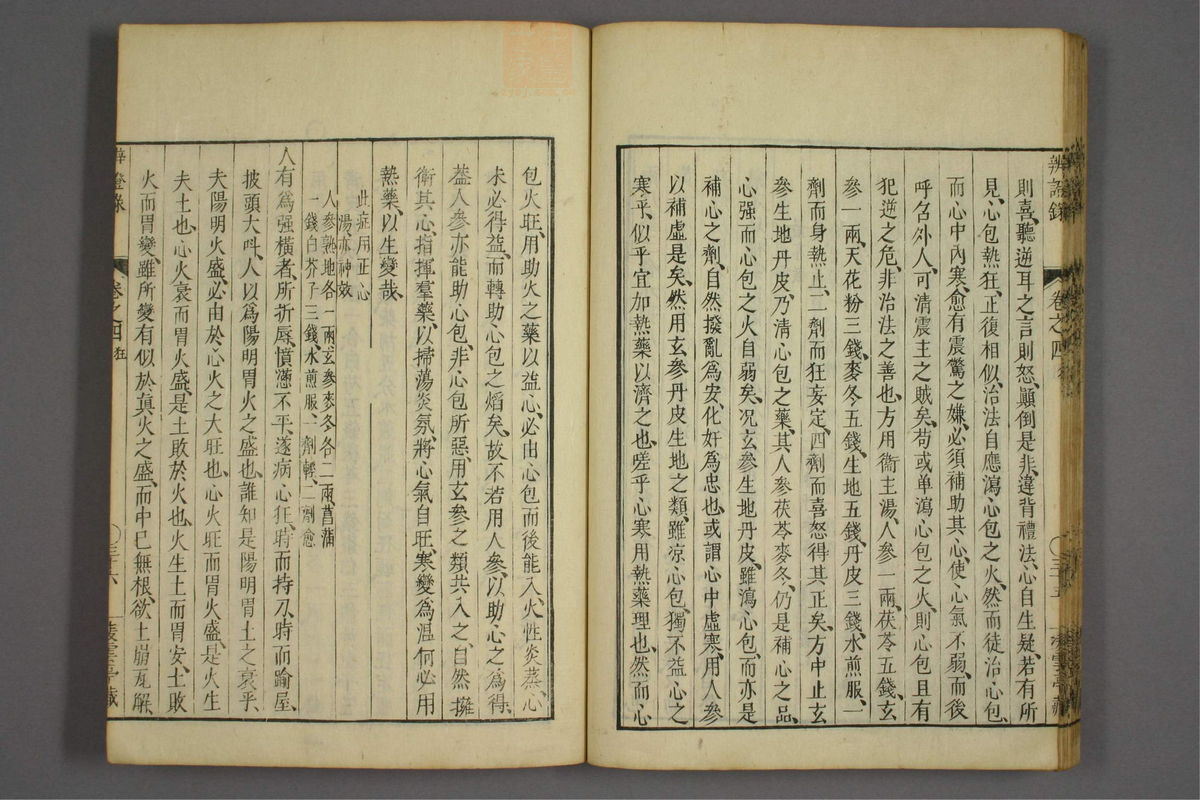 辨證錄 卷之四 三十五
則喜、聽逆耳之言則怒、顚倒是非、違背禮法、心自生疑、若有所
見、心包熱狂、正復相似、治法自應瀉心包之火、然而徒治心包、
而心中內寒、愈有震驚之嫌、必須補助其心、使心氣不弱、而後
呼召外人、可清震主之賊矣、苟或单瀉心包之火、則心包且有
犯逆之危、非治法之善也、方用衛主湯、人參一兩、茯苓五錢、玄
參一兩、天花粉三錢、麥冬五錢、生地五錢、丹皮三錢、水煎服、一
劑而身熱止、二劑而狂妄定、四劑而喜怒得其正矣、方中止玄
參生地丹皮、乃清心包之藥、其人參茯苓麥冬、仍是補心之品、
心强而心包之火自弱矣、况玄參生地丹皮、雖瀉心包、而亦是
補心之劑、自然撥亂爲安、化奸爲忠也、或謂心中虛寒、用人參
以補虛是矣、然用玄參丹皮生地之類、雖凉心包、獨不益心之
寒乎、似乎宜加熱藥以濟之也、嗟乎心寒用熱藥理也、然而心
包火旺、用助火之藥以益心、必由心包而後能入、火性炎蒸、心
未必得益、而轉助心包之焰矣、故不若用人參、以助心之爲得、
葢人參亦能助心包、非心包所惡、用玄參之類共入之、自然擁
衛其心、指揮羣藥、以掃蕩炎氛、將心氣自旺、寒變爲温、何必用
熱藥、以生變哉、
此症用正心
湯亦神效
人參熟地各一兩、玄參麥冬各二兩菖蒲
一錢白芥子三錢、水煎服、一劑輕、二劑愈
人有爲强橫者、所折辱、憤懣不平、遂病心狂、時而持刀、時而踰屋、
披頭大呌、人以爲陽明胃火之盛也、誰知是陽明胃土之衰乎、
夫陽明火盛、必由於心火之大旺也、心火旺而胃火盛、是火生
夫土也、心火衰而胃火盛、是土敗於火也、火生土而胃安、土敗
火而胃變、雖所變有似於眞火之盛、而中已無根、欲土崩瓦解
辨證錄 卷之四 狂 三十六 萲雲亭藏